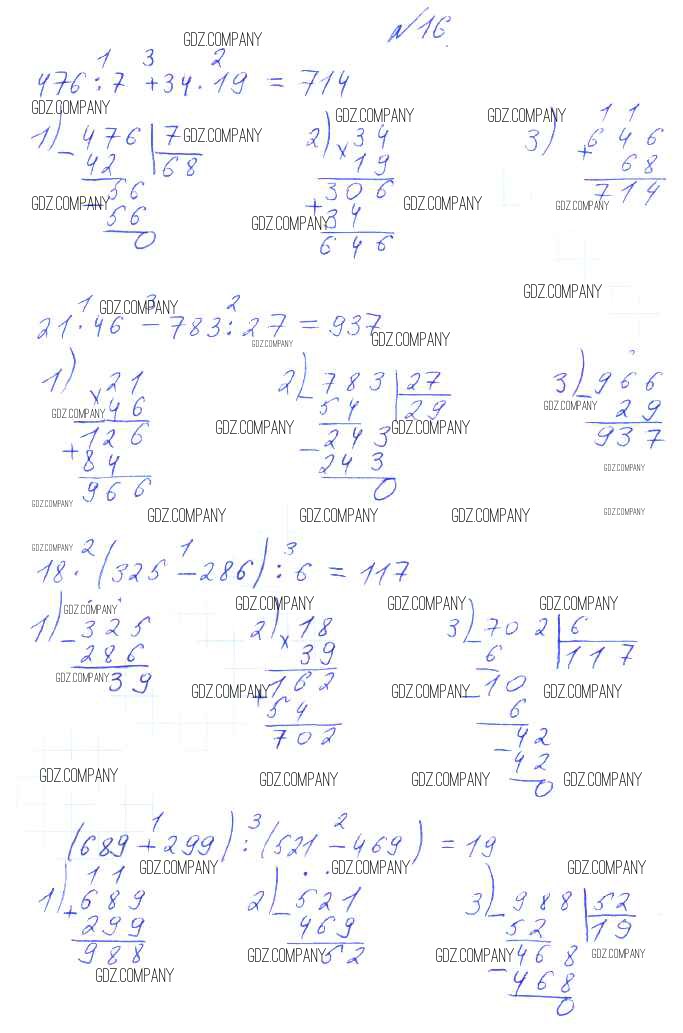 №16.
1 3 2
476 : 7 + 34 · 19 = 714
1) 476 | 7 2) 34 3) 1 1
- 42 68 × 19 646
56 306 + 68
- 56 + 34 714
0 646
1 3 2
21 · 46 - 783 : 27 = 937
1) 21 2) 783 | 27 3) 966
× 46 - 54 29 - 29
126 243 937
+ 84 - 243
966 0
2 1 3
18 · (325 - 286) : 6 = 117
1) 325 2) 18 3) 702 | 6
- 286 × 39 - 6 117
39 162 10
+ 54 - 6
702 42
- 42
0
1 3 2
(689 + 299) : (521 - 469) = 19
1) 1 1 2) 521 3) 988 | 52
689 - 469 - 52 19
+ 299 52 468
988 - 468
0
GDZ.COMPANY